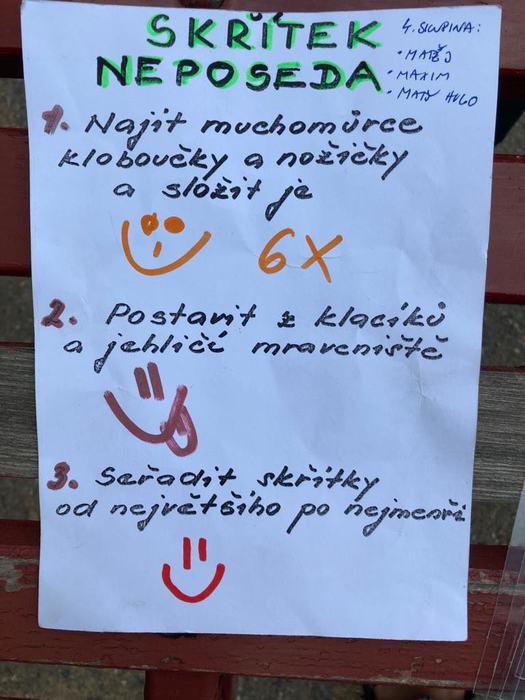 SKŘÍTEK
NEPOSEDA
4. SKUPINA:
• MATĚJ
• MAXIM
• MATY HUGO
1. Najít muchomůrce
kloboučky a nožičky
a složit je
6X
2. Postavit z klacíků
a jehličí mraveniště
3. Seřadit skřítky
od největšího po nejmenší